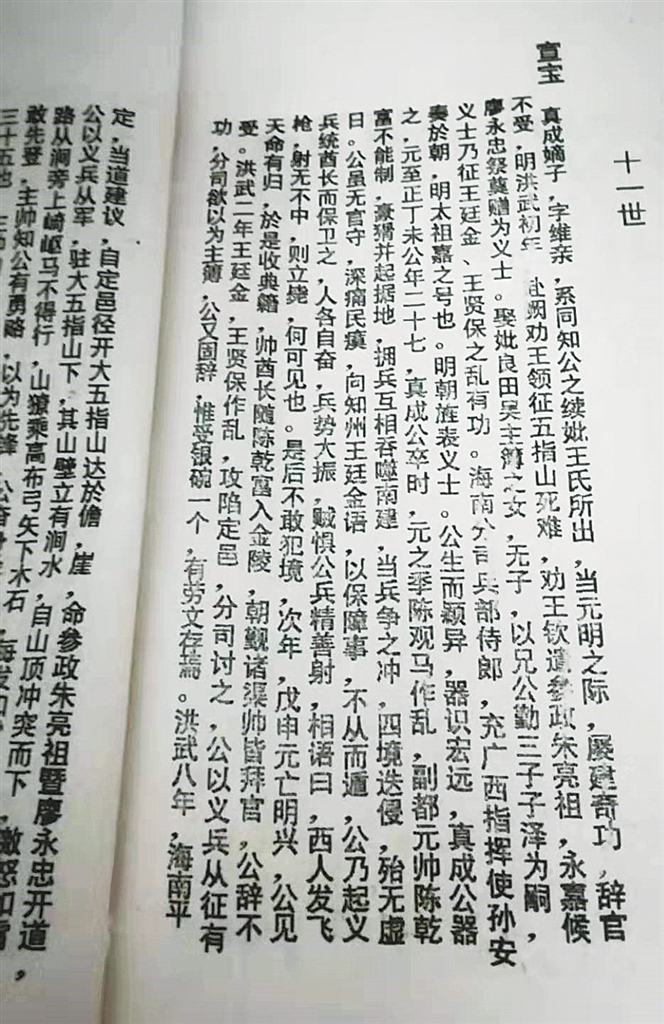 十一世
宣宝
真成嫡子，字维亲，系同知公之续妣王氏所出，当元明之际，屡建奇功，辞官
不受，明洪武初年 赴阙劝王领征五指山死难，劝王钦遣参政朱亮祖，永嘉候
廖永忠祭奠赠为义士。娶妣良田吴主簿之女，无子，以兄公勤三子子泽为嗣，
义士乃征王廷金、王贤保之乱有功。海南分司兵部侍郎，充广西指挥使孙安
奏於朝，明太祖嘉之号也。明朝旌表义士。公生而颖异，器识宏远，真成公器
之，元至正丁未公年二十七，真成公卒时，元之季陈观马作乱，副都元帅陈乾
富不能制，豪猾并起据地，拥兵互相吞噬南建，当兵争之冲，四境迭侵，殆无虚
日。公虽无官守，深痛民瘼，向知州王廷金语，以保障事，不从而遁，公乃起义
兵统酋长而保卫之，人各自奋，兵势大振，贼惧公兵精善射，相语曰，西人发飞
枪，射无不中，则立毙，何可见也。是后不敢犯境，次年，戊申元亡明兴，公见
天命有归，於是收典籍，帅酋长随陈乾富入金陵，朝觐诸渠帅皆拜官，公辞不
受。洪武二年王廷金，王贤保作乱，攻陷定邑，分司讨之，公以义兵从征有
功，分司欲以为主簿，公又固辞，惟受银碗一个，有劳文存焉。洪武八年，海南平
定，当道建议，自定邑径开大五指山达於儋，崖，命参政朱亮祖暨廖永忠开道
公以义兵从军，驻大五指山下，其山壁立有涧水，自山顶冲突而下，激怒如雷，
路从涧旁上崎岖马不得行，山獠乘高布弓矢下木石，
敢先登，主帅知公有勇略，以为先锋，公奋
三十五地